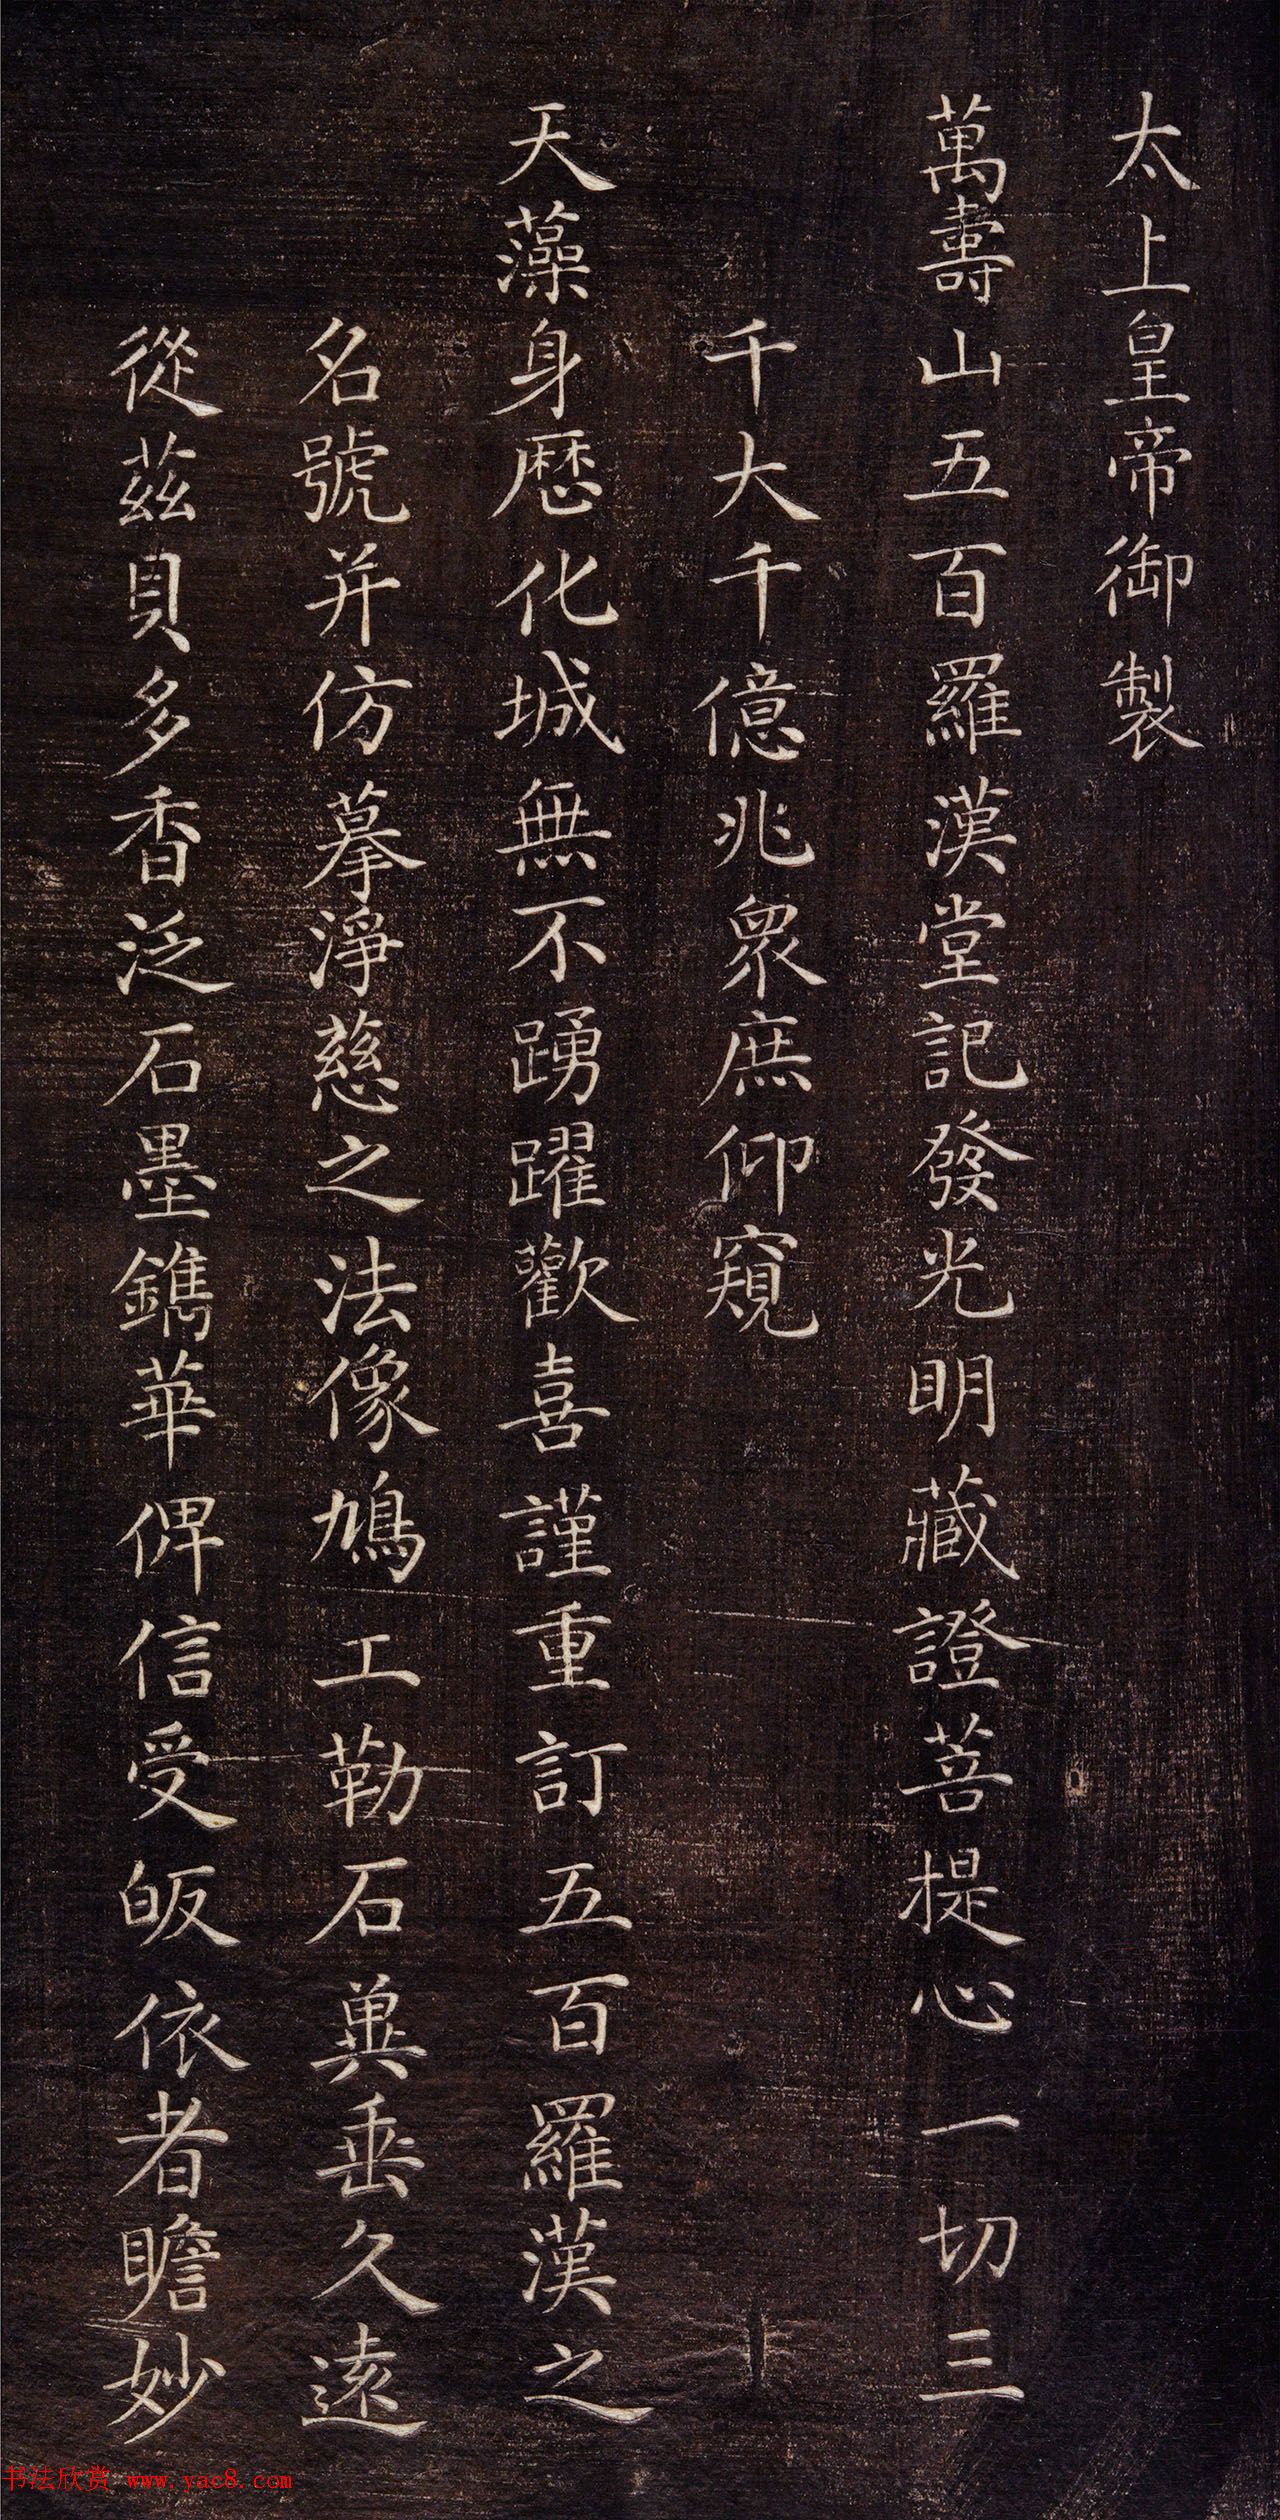 太上皇帝御製
萬壽山五百羅漢堂記發光明藏證菩提心一切三
千大千億兆衆庶仰窺
天藻身歷化城無不踴躍歡喜謹重訂五百羅漢之
名號并仿摹淨慈之法像鳩工勒石冀垂久遠
從茲貝多香泛石墨鐫華俾信受皈依者瞻妙
书法欣赏 www.yac8.com